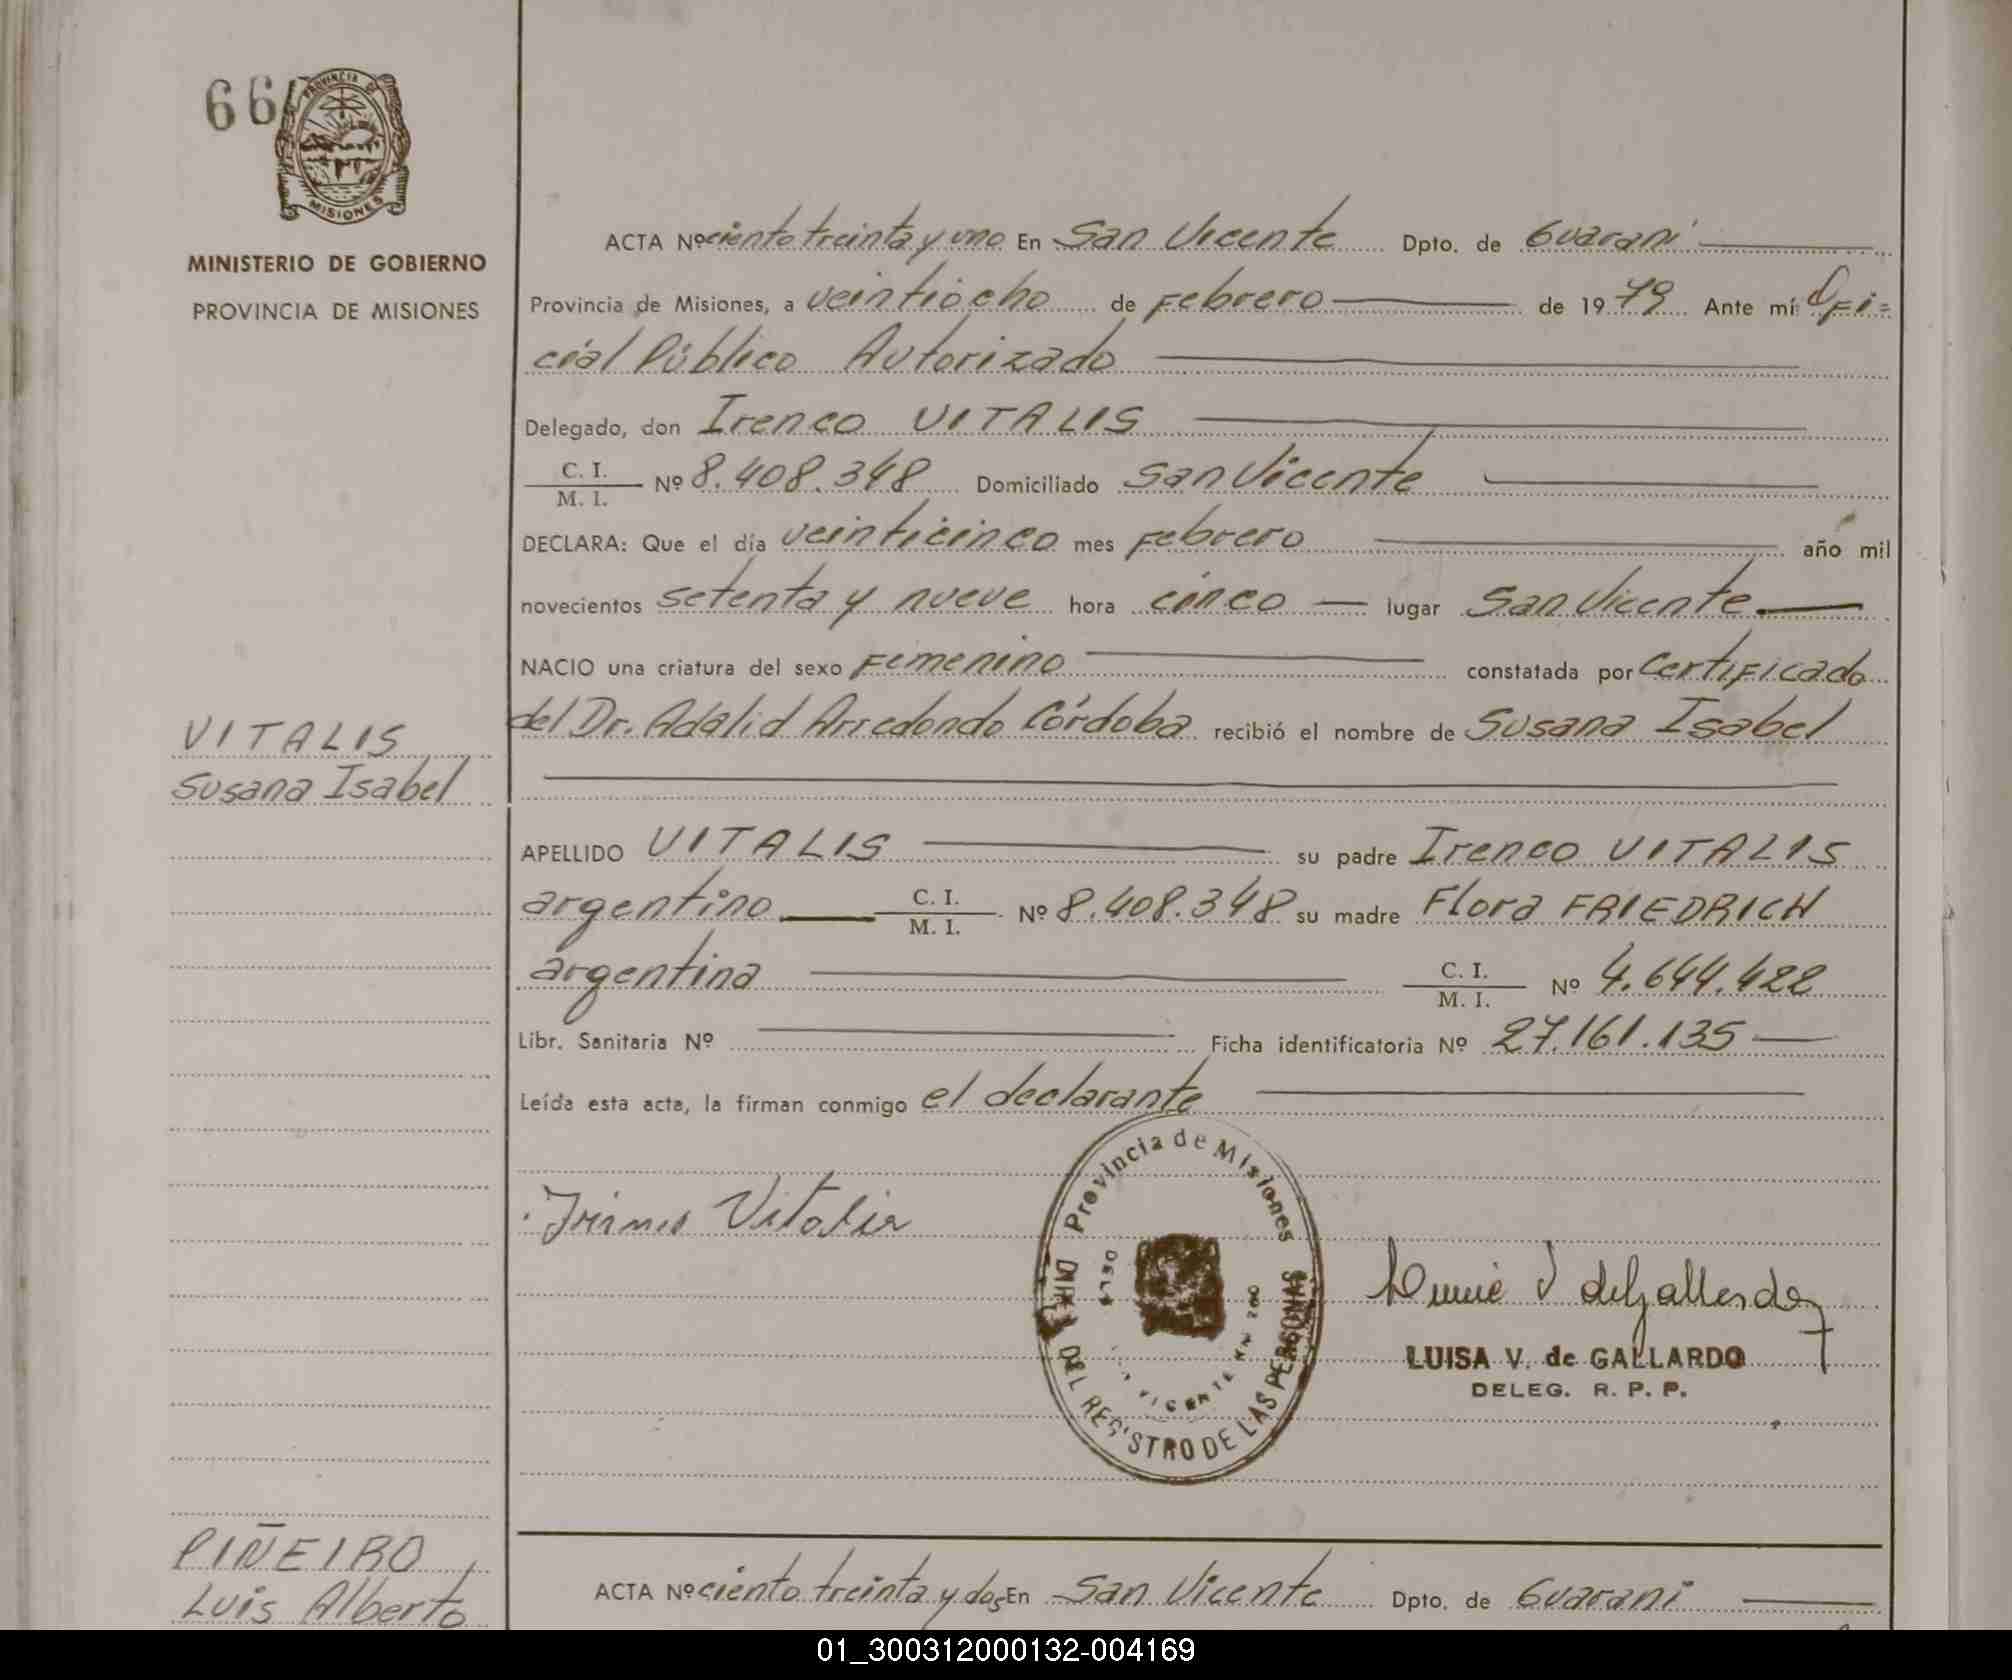 66
PROVINCIA DE
MISIONES
MINISTERIO DE GOBIERNO
PROVINCIA DE MISIONES
ACTA Nº ciento treinta y uno En San Vicente Dpto. de Guaraní
Provincia de Misiones, a veintiocho de Febrero de 1979 Ante mí: Ofi=
cial Público Autorizado
Delegado, don Ireneo VITALIS
C. I.
M. I. Nº 8.408.348 Domiciliado San Vicente
DECLARA: Que el día veinticinco mes Febrero año mil
novecientos setenta y nueve hora cinco lugar San Vicente
NACIO una criatura del sexo Femenino constatada por Certificado
del Dr. Adalid Arredondo Córdoba recibió el nombre de Susana Isabel
VITALIS
Susana Isabel
APELLIDO VITALIS su padre Ireneo VITALIS
argentino C. I.
M. I. Nº 8.408.348 su madre Flora FRIEDRICH
argentina C. I.
M. I. Nº 4.644.422
Libr. Sanitaria Nº Ficha identificatoria Nº 27.161.135
Leída esta acta, la firman conmigo el declarante
Provincia de Misiones
DEL REGISTRO DE LAS PERSONAS
VICENTE
LUISA V. de GALLARDO
DELEG. R. P. P.
PIÑEIRO
Luis Alberto
ACTA Nº ciento treinta y dos En San Vicente Dpto. de Guaraní
01_300312000132-004169